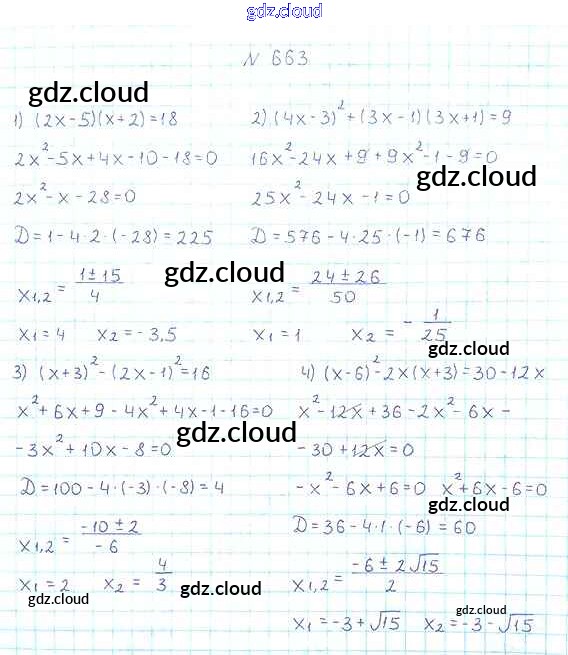 gdz.cloud
N 663
gdz.cloud
1) (2x-5)(x+2)=18
2x²-5x+4x-10-18=0
2x²-x-28=0
D=1-4·2·(-28)=225
x1,2 = (1±15)/4
x1=4 x2=-3,5
2) (4x-3)²+(3x-1)(3x+1)=9
16x²-24x+9+9x²-1-9=0
gdz.cloud
25x²-24x-1=0
D=576-4·25·(-1)=676
gdz.cloud
x1,2 = (24±26)/50
x1=1 x2=-1/25
gdz.cloud
3) (x+3)²-(2x-1)²=16
x²+6x+9-4x²+4x-1-16=0
gdz.cloud
-3x²+10x-8=0
D=100-4·(-3)·(-8)=4
x1,2 = (-10±2)/-6
x1=2 x2=4/3
gdz.cloud
gdz.cloud
4) (x-6)²-2x(x+3)=30-12x
x²-12x+36-2x²-6x-
-30+12x=0
-x²-6x+6=0 x²+6x-6=0
gdz.cloud
D=36-4·1·(-6)=60
x1,2 = (-6±2√15)/2
gdz.cloud
x1=-3+√15 x2=-3-√15